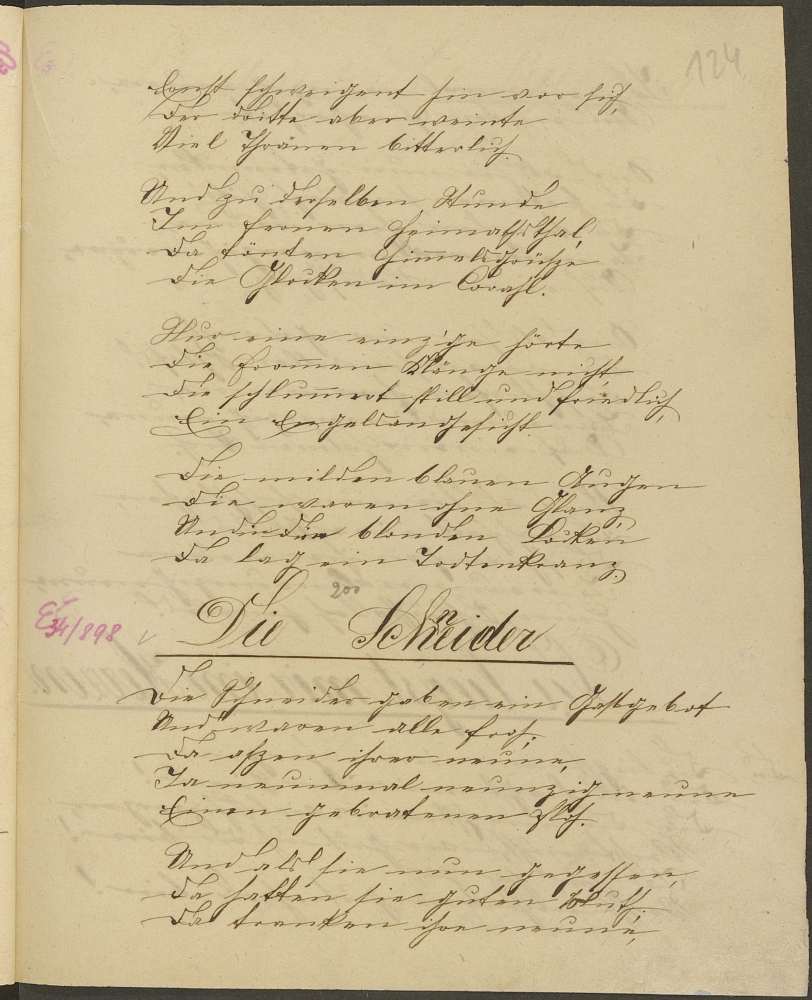 124
Ernst schweigent hin vor sich,
Der dritte aber weinte
Viel Thränen bitterlich.
Und zu derselben Stunde
Im fernen Heimathsthal,
Da tönten Himmelsgrüße
Die Glocken im Corahl.
Nur eine einz'ge hörte
Die frommen Klänge nicht
Die schlummert still und friedlich,
Ein Engelsangesicht.
Die milden blauen Augen
Die waren ohne Glanz,
Und in den blonden Locken
Da lag ein Todtenkranz.
200
34/898
Die Schneider
Die Schneider gaben ein Gastgebot
Und waren alle froh,
Da aßzen ihrer neune,
Ja neunmal neunzig neune
Einen gebratenen Floh.
Und als sie nun gegessen,
Da hatten sie guten Muth,
Da tranken ihre neune,